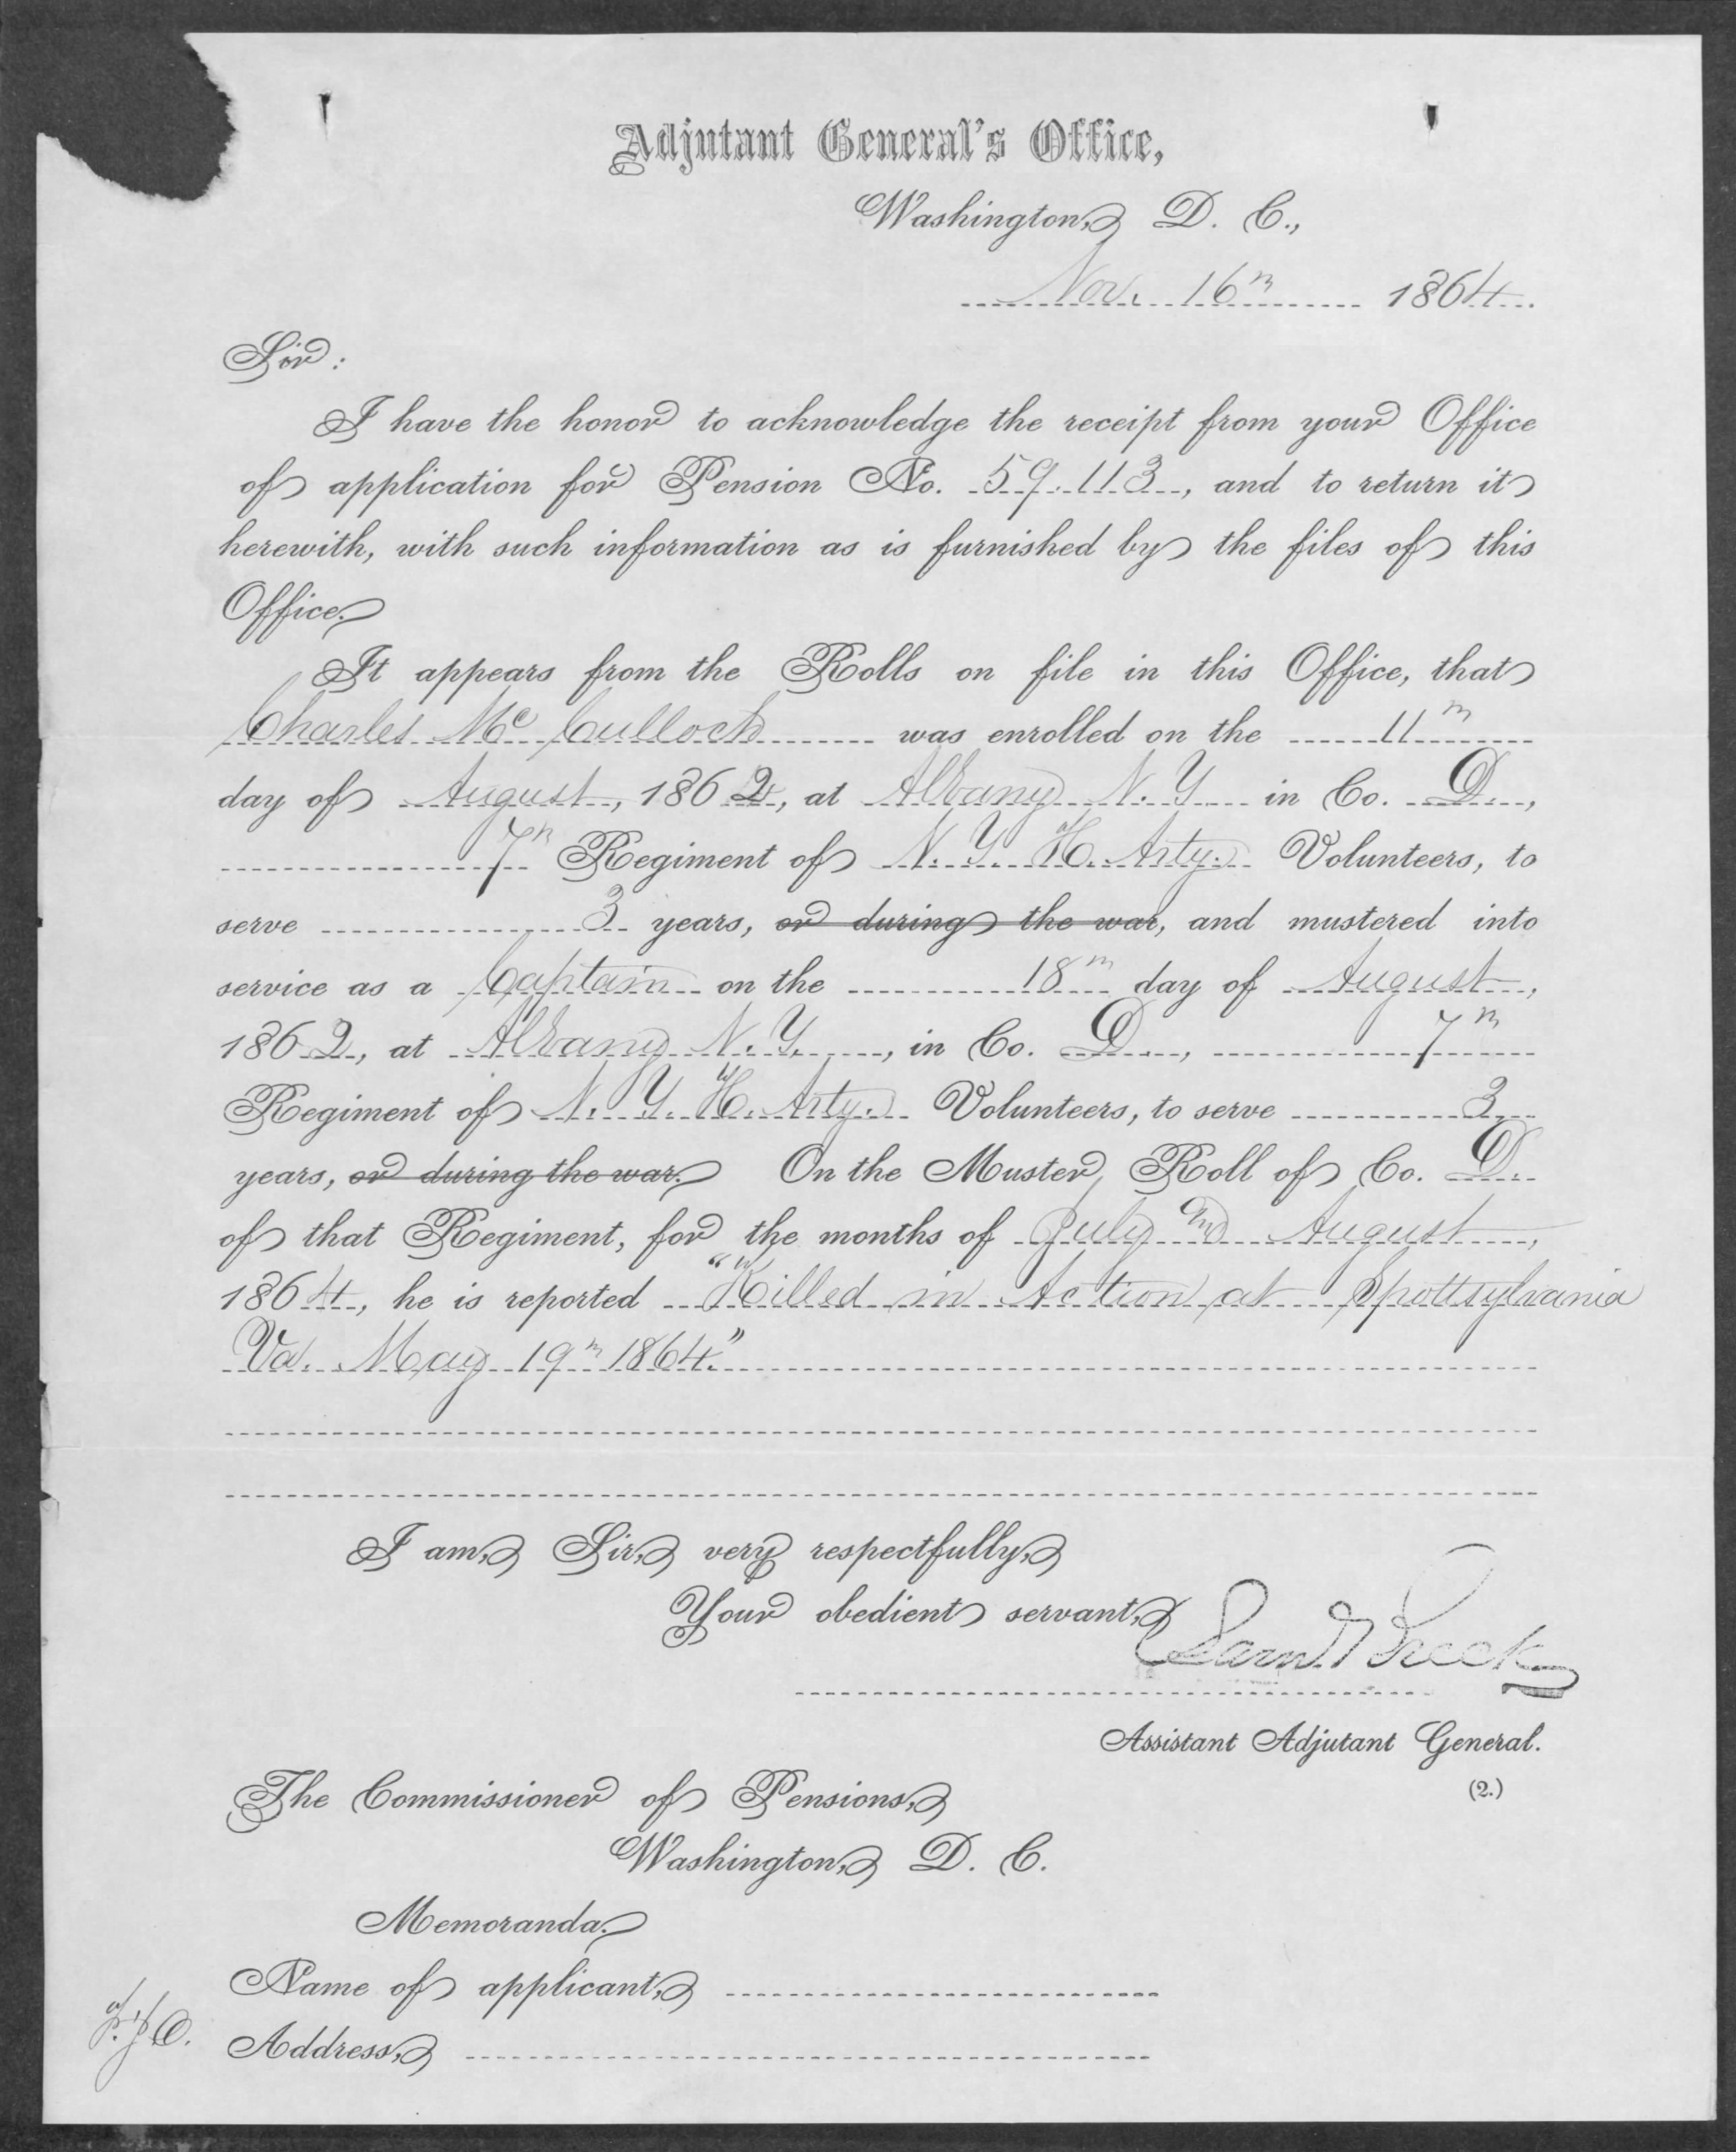 Adjutant General's Office,
Washington, D. C.,
Nov. 16th 1864.
Sir:
I have the honor to acknowledge the receipt from your Office
of application for Pension No. 59.113, and to return it
herewith, with such information as is furnished by the files of this
Office.
It appears from the Rolls on file in this Office, that
Charles McCulloch was enrolled on the 11th
day of August, 1862, at Albany N.Y. in Co. D.,
7th Regiment of N.Y. H. Arty. Volunteers, to
serve 3 years, or during the war, and mustered into
service as a Captain on the 18th day of August,
1862, at Albany N.Y., in Co. D., 7th
Regiment of N.Y. H. Arty. Volunteers, to serve 3
years, or during the war. On the Muster Roll of Co. D.
of that Regiment, for the months of July and August,
1864, he is reported "Killed in Action at Spottsylvania
Va. May 19th 1864."
I am, Sir, very respectfully,
Your obedient servant,
Saml Breck
Assistant Adjutant General.
(2.)
The Commissioner of Pensions,
Washington, D. C.
Memoranda.
Name of applicant,
Address,